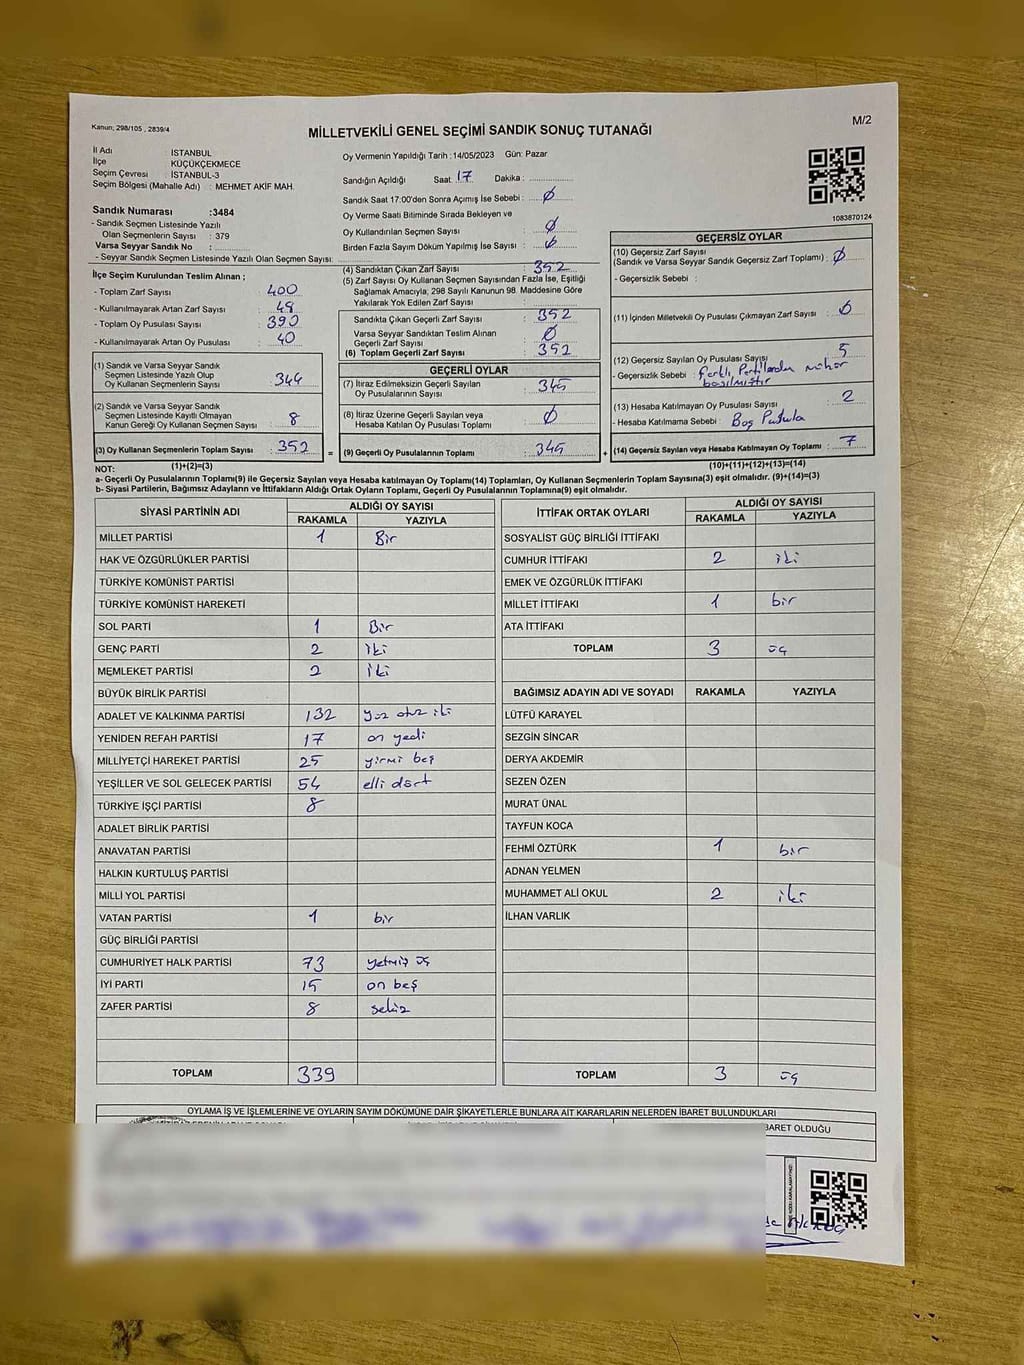 Kanun; 298/105 , 2839/4
M/2
MİLLETVEKİLİ GENEL SEÇİMİ SANDIK SONUÇ TUTANAĞI
İl Adı : İSTANBUL
İlçe : KÜÇÜKÇEKMECE
Seçim Çevresi : İSTANBUL-3
Seçim Bölgesi (Mahalle Adı) : MEHMET AKİF MAH.
Sandık Numarası :3484
- Sandık Seçmen Listesinde Yazılı
Olan Seçmenlerin Sayısı : 379
Varsa Seyyar Sandık No :
- Seyyar Sandık Seçmen Listesinde Yazılı Olan Seçmen Sayısı:
Oy Vermenin Yapıldığı Tarih :14/05/2023 Gün: Pazar
Sandığın Açıldığı Saat: 17 Dakika :
Sandık Saat 17:00'den Sonra Açımış İse Sebebi : Ø
Oy Verme Saati Bitiminde Sırada Bekleyen ve
Oy Kullandırılan Seçmen Sayısı : Ø
Birden Fazla Sayım Döküm Yapılmış İse Sayısı : Ø
1083870124
İlçe Seçim Kurulundan Teslim Alınan ;
- Toplam Zarf Sayısı : 400
- Kullanılmayarak Artan Zarf Sayısı : 48
- Toplam Oy Pusulası Sayısı : 390
- Kullanılmayarak Artan Oy Pusulası : 40
(1) Sandık ve Varsa Seyyar Sandık
Seçmen Listesinde Yazılı Olup
Oy Kullanan Seçmenlerin Sayısı : 344
(2) Sandık ve Varsa Seyyar Sandık
Seçmen Listesinde Kayıtlı Olmayan
Kanun Gereği Oy Kullanan Seçmen Sayısı : 8
(3) Oy Kullanan Seçmenlerin Toplam Sayısı : 352
(1)+(2)=(3)
(4) Sandıktan Çıkan Zarf Sayısı : 352
(5) Zarf Sayısı Oy Kullanan Seçmen Sayısından Fazla İse, Eşitliği
Sağlamak Amacıyla; 298 Sayılı Kanunun 98. Maddesine Göre
Yakılarak Yok Edilen Zarf Sayısı :
Sandıkta Çıkan Geçerli Zarf Sayısı : 352
Varsa Seyyar Sandıktan Teslim Alınan
Geçerli Zarf Sayısı : Ø
(6) Toplam Geçerli Zarf Sayısı : 352
GEÇERLİ OYLAR
(7) İtiraz Edilmeksizin Geçerli Sayılan
Oy Pusulalarının Sayısı : 345
(8) İtiraz Üzerine Geçerli Sayılan veya
Hesaba Katılan Oy Pusulası Toplamı : Ø
= (9) Geçerli Oy Pusulalarının Toplamı : 345 +
GEÇERSİZ OYLAR
(10) Geçersiz Zarf Sayısı
(Sandık ve Varsa Seyyar Sandık Geçersiz Zarf Toplamı) : Ø
- Geçersizlik Sebebi :
(11) İçinden Milletvekili Oy Pusulası Çıkmayan Zarf Sayısı : Ø
(12) Geçersiz Sayılan Oy Pusulası Sayısı : 5
- Geçersizlik Sebebi : farklı Partilerden mühür
basılmıştır
(13) Hesaba Katılmayan Oy Pusulası Sayısı : 2
- Hesaba Katılmama Sebebi : Boş Pusula
(14) Geçersiz Sayılan veya Hesaba Katılmayan Oy Toplamı : 7
(10)+(11)+(12)+(13)=(14)
NOT:
a- Geçerli Oy Pusulalarının Toplamı(9) ile Geçersiz Sayılan veya Hesaba katılmayan Oy Toplamı(14) Toplamları, Oy Kullanan Seçmenlerin Toplam Sayısına(3) eşit olmalıdır. (9)+(14)=(3)
b- Siyasi Partilerin, Bağımsız Adayların ve İttifakların Aldığı Ortak Oyların Toplamı, Geçerli Oy Pusulalarının Toplamına(9) eşit olmalıdır.
SİYASİ PARTİNİN ADI ALDIĞI OY SAYISI
RAKAMLA YAZIYLA
MİLLET PARTİSİ 1 Bir
HAK VE ÖZGÜRLÜKLER PARTİSİ
TÜRKİYE KOMÜNİST PARTİSİ
TÜRKİYE KOMÜNİST HAREKETİ
SOL PARTİ 1 Bir
GENÇ PARTİ 2 iki
MEMLEKET PARTİSİ 2 iki
BÜYÜK BİRLİK PARTİSİ
ADALET VE KALKINMA PARTİSİ 132 yüz otuz iki
YENİDEN REFAH PARTİSİ 17 on yedi
MİLLİYETÇİ HAREKET PARTİSİ 25 yirmi beş
YEŞİLLER VE SOL GELECEK PARTİSİ 54 elli dört
TÜRKİYE İŞÇİ PARTİSİ 8
ADALET BİRLİK PARTİSİ
ANAVATAN PARTİSİ
HALKIN KURTULUŞ PARTİSİ
MİLLİ YOL PARTİSİ
VATAN PARTİSİ 1 bir
GÜÇ BİRLİĞİ PARTİSİ
CUMHURİYET HALK PARTİSİ 73 yetmiş üç
İYİ PARTİ 15 on beş
ZAFER PARTİSİ 8 sekiz
TOPLAM 339
İTTİFAK ORTAK OYLARI ALDIĞI OY SAYISI
RAKAMLA YAZIYLA
SOSYALİST GÜÇ BİRLİĞİ İTTİFAKI
CUMHUR İTTİFAKI 2 iki
EMEK VE ÖZGÜRLÜK İTTİFAKI
MİLLET İTTİFAKI 1 bir
ATA İTTİFAKI
TOPLAM 3 üç
BAĞIMSIZ ADAYIN ADI VE SOYADI RAKAMLA YAZIYLA
LÜTFÜ KARAYEL
SEZGİN SİNCAR
DERYA AKDEMİR
SEZEN ÖZEN
MURAT ÜNAL
TAYFUN KOCA
FEHMİ ÖZTÜRK 1 bir
ADNAN YELMEN
MUHAMMET ALİ OKUL 2 iki
İLHAN VARLIK
TOPLAM 3 üç
OYLAMA İŞ VE İŞLEMLERİNE VE OYLARIN SAYIM DÖKÜMÜNE DAİR ŞİKAYETLERLE BUNLARA AİT KARARLARIN NELERDEN İBARET BULUNDUKLARI
BARET OLDUĞU